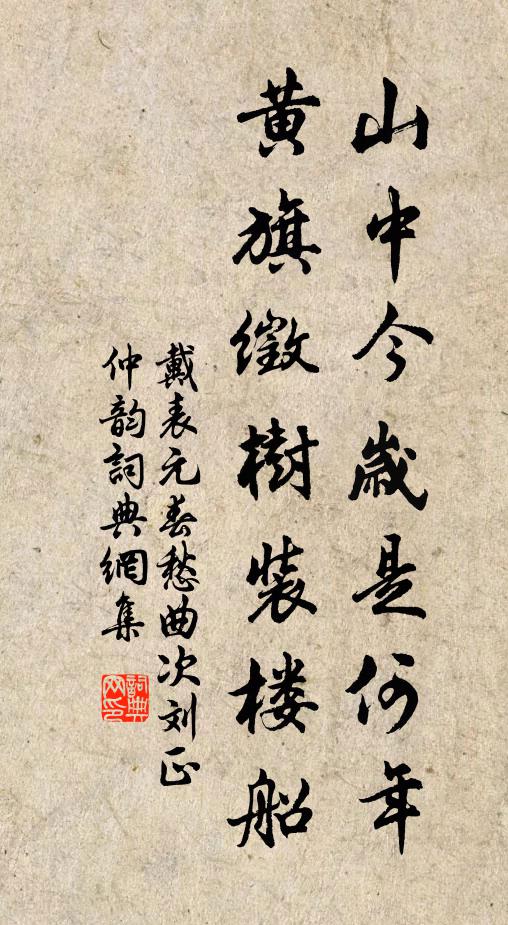 山中今歲是何年
黄旗徵樹装楼船
戴表元春愁曲次刘正
仲韵詞典網集
詞典
网印